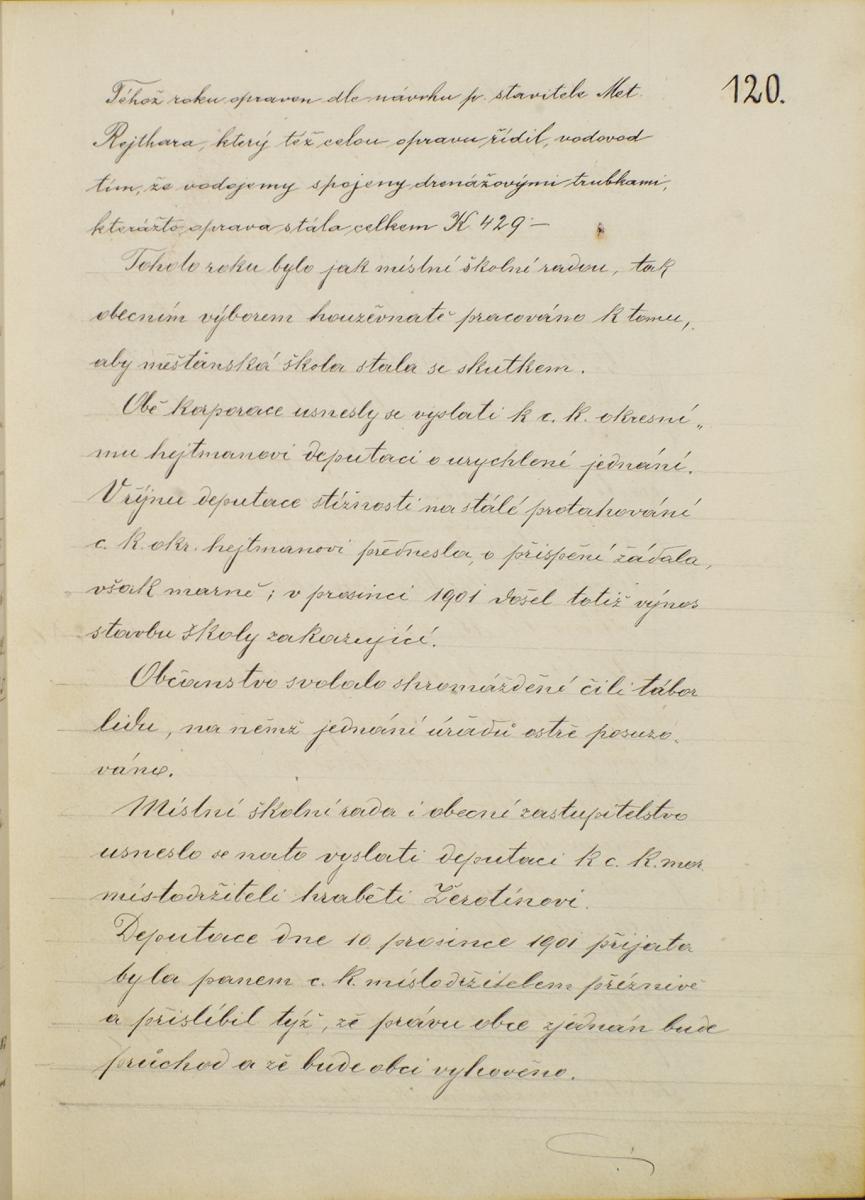 120.
Téhož roku opraven dle návrhu p. stavitele Met.
Rejthara, který též celou opravu řídil, vodovod
tím, že vodojemy spojeny drenážovými trubkami,
kterážto oprava stála celkem K 429·–
Tohoto roku bylo jak místní školní radou, tak
obecním výborem houževnatě pracováno k tomu,
aby měšťanská škola stala se skutkem.
Obě korporace usnesly se vyslati k c. k. okresní„
mu hejtmanovi deputaci o urychlené jednání.
V říjnu deputace stížnosti na stálé protahování
c. k. okr. hejtmanovi přednesla, o přispění žádala,
však marně; v prosinci 1901 došel totiž výnos
stavbu školy zakazující.
Občanstvo svolalo shromáždění čili tábor
lidu, na němž jednání úřadů ostře posuzo„
váno.
Místní školní rada i obecní zastupitelstvo
usneslo se nato vyslati deputaci k c. k. mor.
místodržiteli hraběti Žerotínovi.
Deputace dne 10 prosince 1901 přijata
byla panem c. k. místodržitelem příznivě
a přislíbil týž, že právu obce zjednán bude
průchod a že bude obci vyhověno.